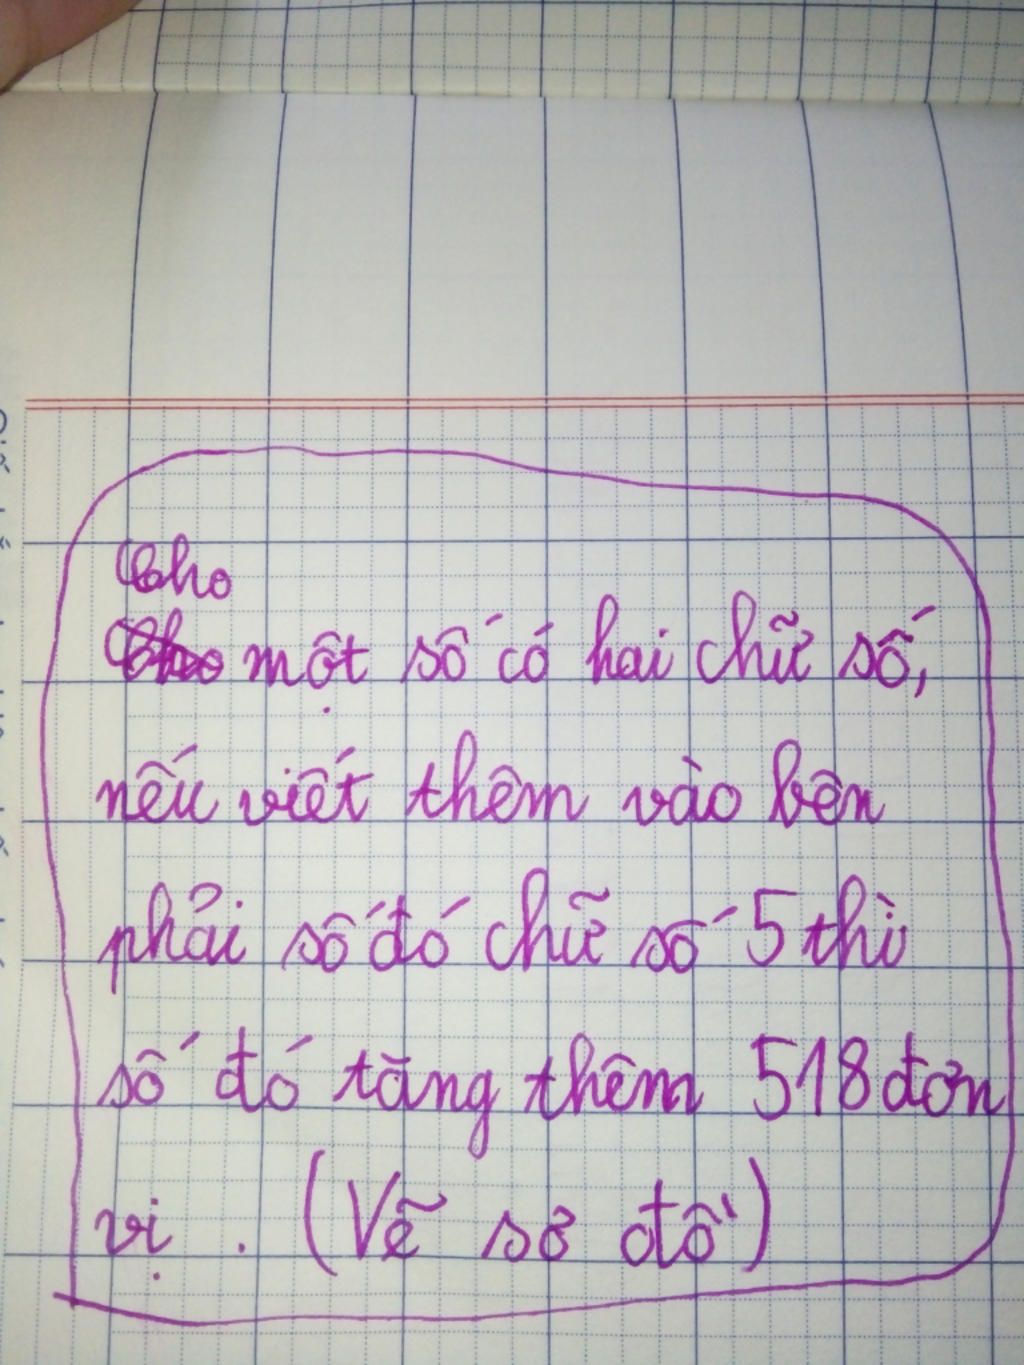 Cho
một số có hai chữ số,
nếu viết thêm vào bên
phải số đó chữ số 5 thì
số đó tăng thêm 518 đơn
vị. (Vẽ sơ đồ)